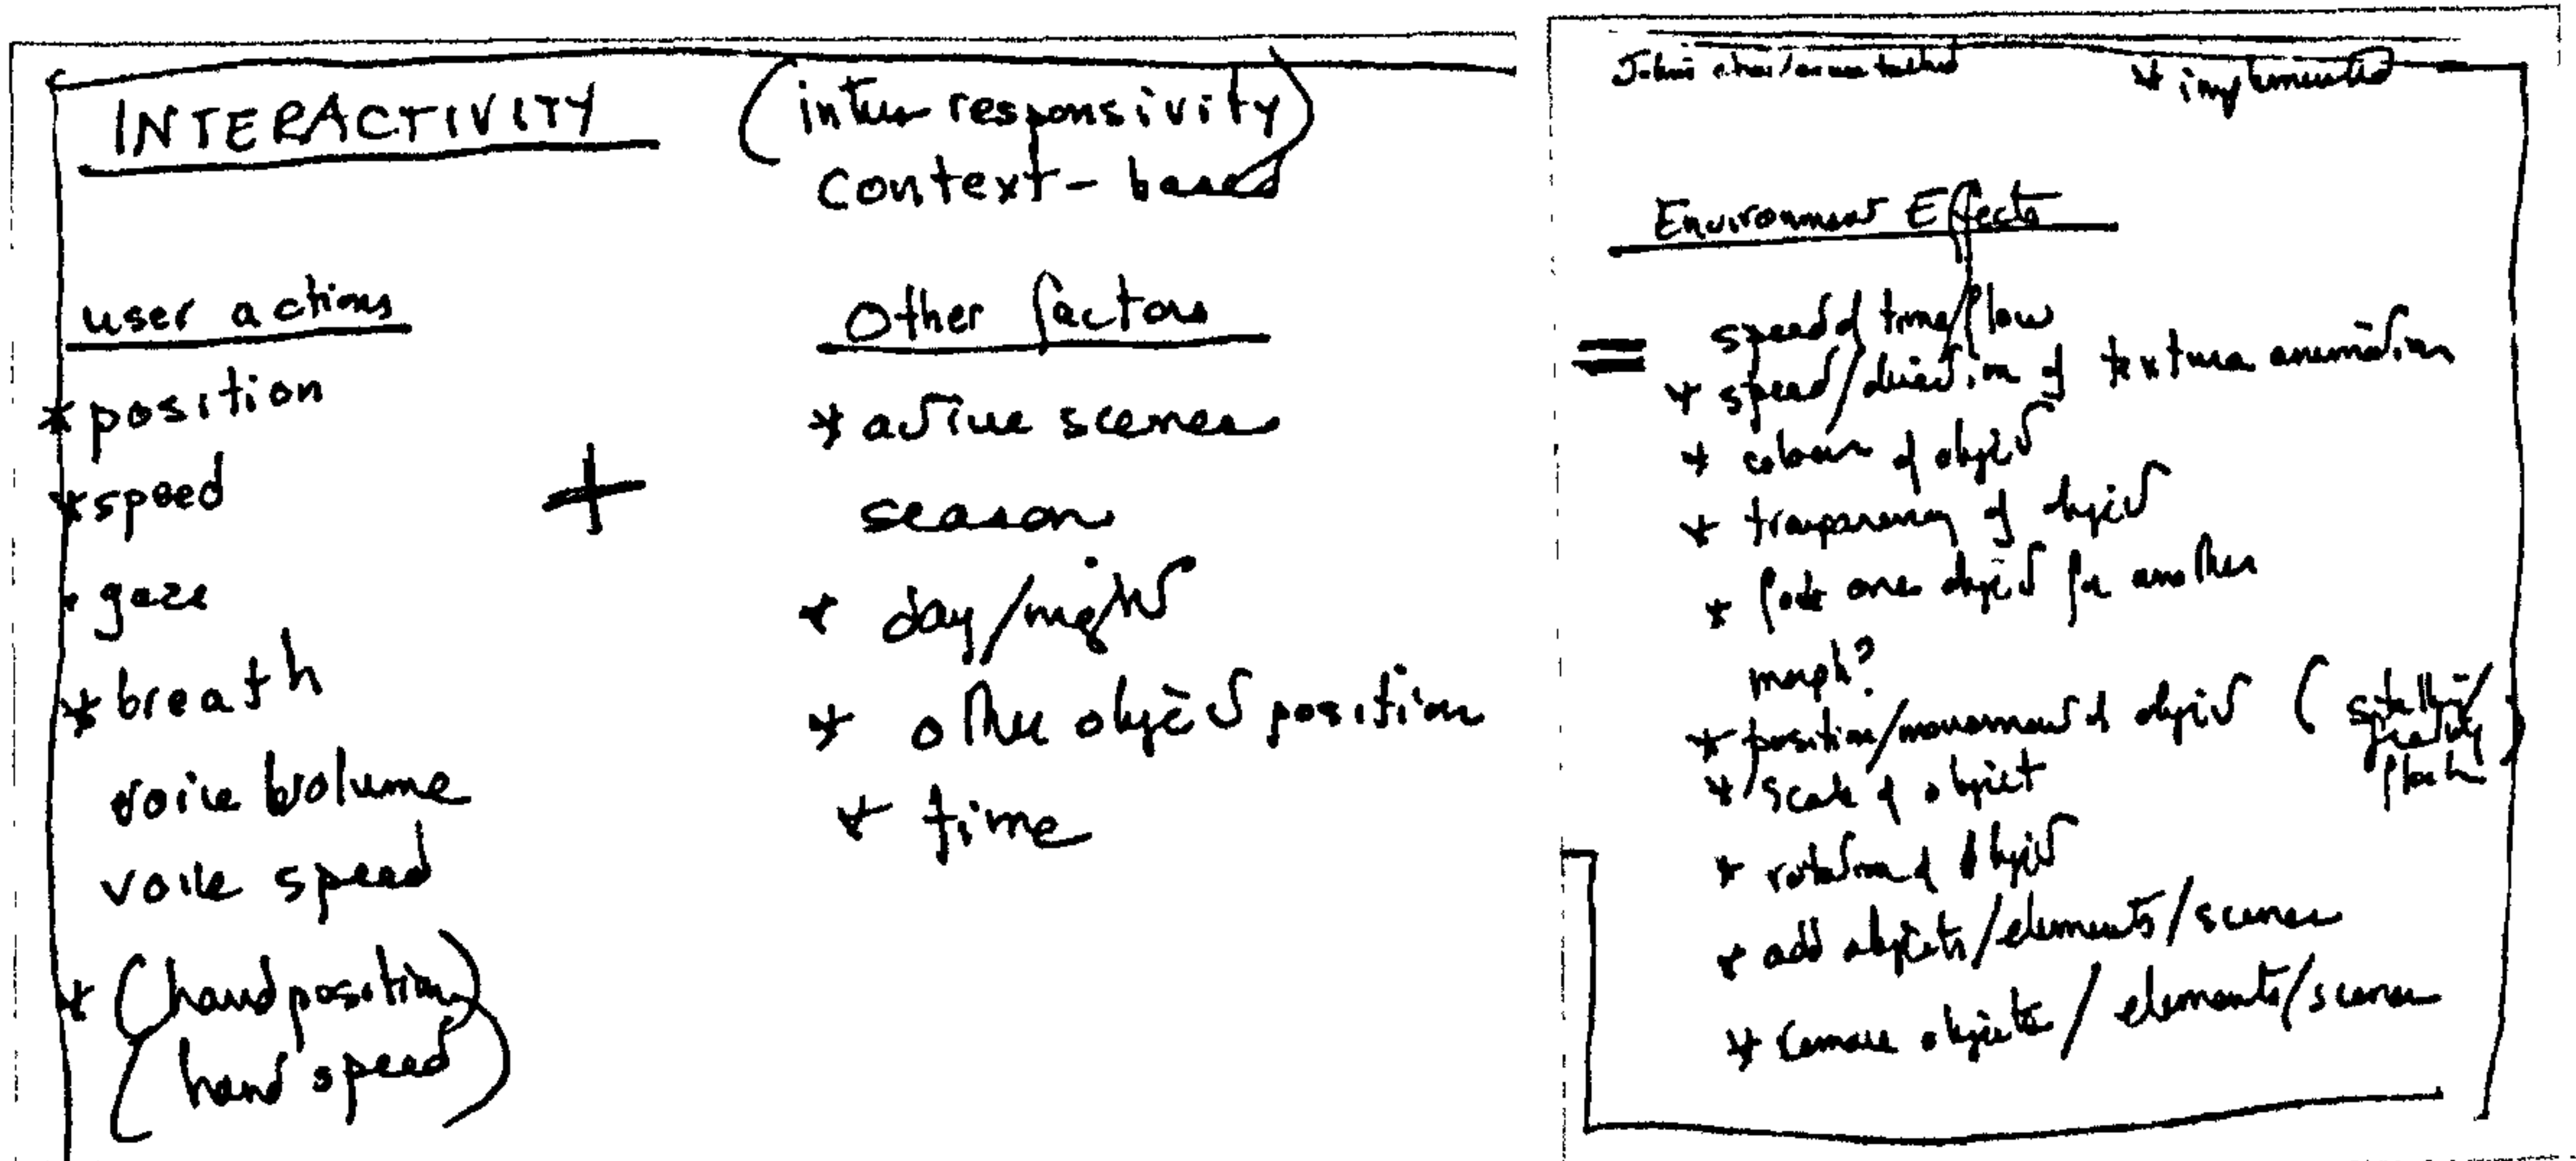 INTERACTIVITY
(inter responsivity)
context-based
user actions
* position
* speed
· gaze
* breath
voice volume
voice speed
* (hand position)
(hand speed)
+
Other factors
* active scenes
season
* day/night
* other object position
* time
* implemented
Environment Effects
= speed of time/flow
* speed/direction of texture animation
* colour of object
* transparency of object
* fade one object for another
morph?
* position/movement of object (
* scale of object
* rotation of object
* add objects/elements/scenes
* remove objects/elements/scenes